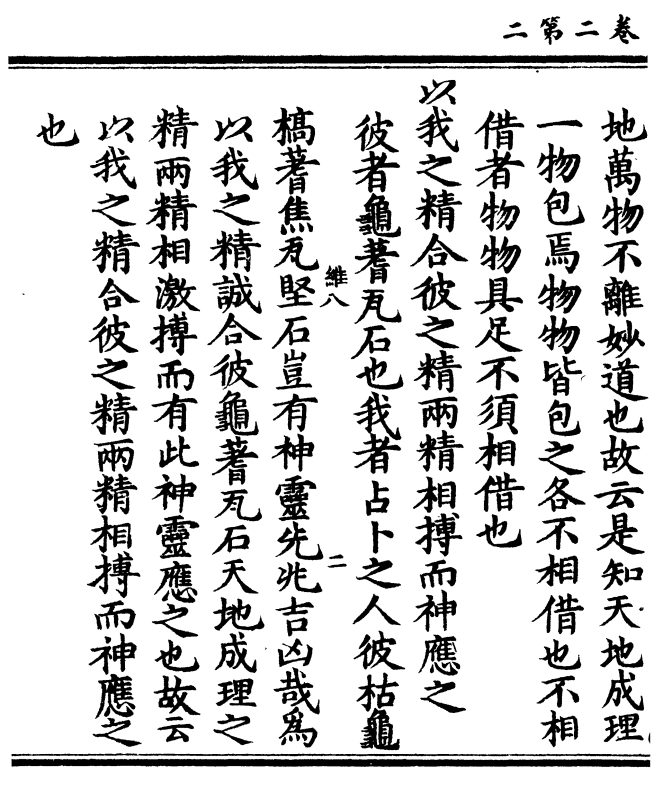 卷二第二
地萬物不離妙道也故云是知天地成理
一物包焉物物皆包之各不相借也不相
借者物物具足不須相借也
以我之精合彼之精兩精相搏而神應之
彼者龜蓍瓦石也我者占卜之人彼枯龜
槁蓍焦瓦堅石豈有神靈先兆吉凶哉爲
維八
二
以我之精誠合彼龜蓍瓦石天地成理之
精兩精相激搏而有此神靈應之也故云
以我之精合彼之精兩精相搏而神應之
也